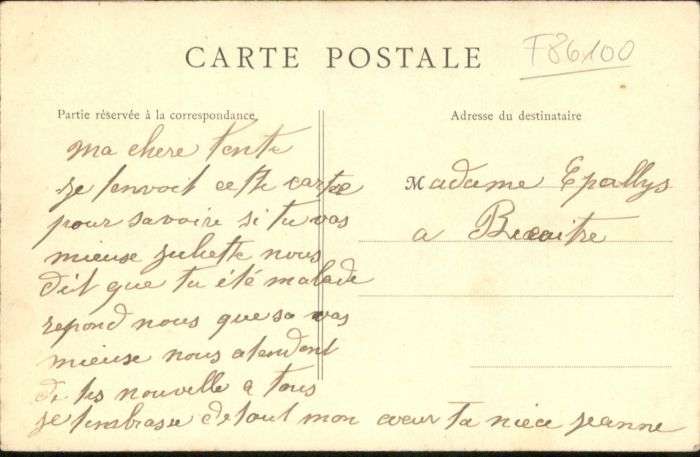 CARTE POSTALE
F86100
Partie réservée à la correspondance
Adresse du destinataire
ma chere tente
je tenvoit cette carte
pour savoire si tu vas
mieuse juliette nous
dit que tu été malade
repond nous que sa vas
mieuse nous atendont
de tes nouvelle a tous
je tembrasse de tout mon cœur ta niece jeanne
Madame Epallys
a Bicaitre